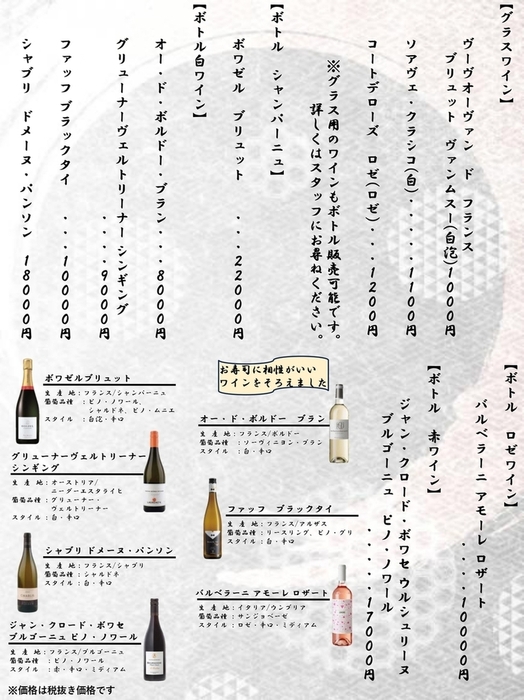 【グラスワイン】
ヴーヴオーヴァン ド フランス
ブリュット ヴァンムスー(白泡)1000円
ソアヴェ・クラシコ(白)・・・・・1100円
コートデローズ ロゼ(ロゼ)・・・1200円
※グラス用のワインもボトル販売可能です。
詳しくはスタッフにお尋ねください。
【ボトル シャンパーニュ】
ボワゼル ブリュット ・・・22000円
【ボトル白ワイン】
オー・ド・ボルドー・ブラン・・・8000円
グリューナーヴェルトリーナー シンギング
・・・・9000円
ファッフ ブラックタイ ・・・・10000円
シャブリ ドメーヌ・パンソン 18000円
【ボトル ロゼワイン】
バルベラーニ アモーレ ロザート
・・・・・10000円
【ボトル 赤ワイン】
ジャン・クロード・ボワセ ウルシュリーヌ
ブルゴーニュ ピノ・ノワール
・・・・・17000円
お寿司に相性がいい
ワインをそろえました
ボワゼルブリュット
生産地:フランス/シャンパーニュ
葡萄品種:ピノ・ノワール、
シャルドネ、ピノ・ムニエ
スタイル:白泡・辛口
オー・ド・ボルドー ブラン
生産地:フランス/ボルドー
葡萄品種:ソーヴィニヨン・ブラン
スタイル:白・辛口
グリューナーヴェルトリーナー
シンギング
生産地:オーストリア/
ニーダーエスタライヒ
葡萄品種:グリューナー・
ヴェルトリーナー
スタイル:白・辛口
ファッフ ブラックタイ
生産地:フランス/アルザス
葡萄品種:リースリング、ピノ・グリ
スタイル:白・辛口
シャブリ ドメーヌ・パンソン
生産地:フランス/シャブリ
葡萄品種:シャルドネ
スタイル:白・辛口
バルベラーニ アモーレ ロザート
生産地:イタリア/ウンブリア
葡萄品種:サンジョベーゼ
スタイル:ロゼ・辛口・ミディアム
ジャン・クロード・ボワセ
ブルゴーニュ ピノ・ノワール
生産地:フランス/ブルゴーニュ
葡萄品種:ピノ・ノワール
スタイル:赤・辛口・ミディアム
※価格は税抜き価格です